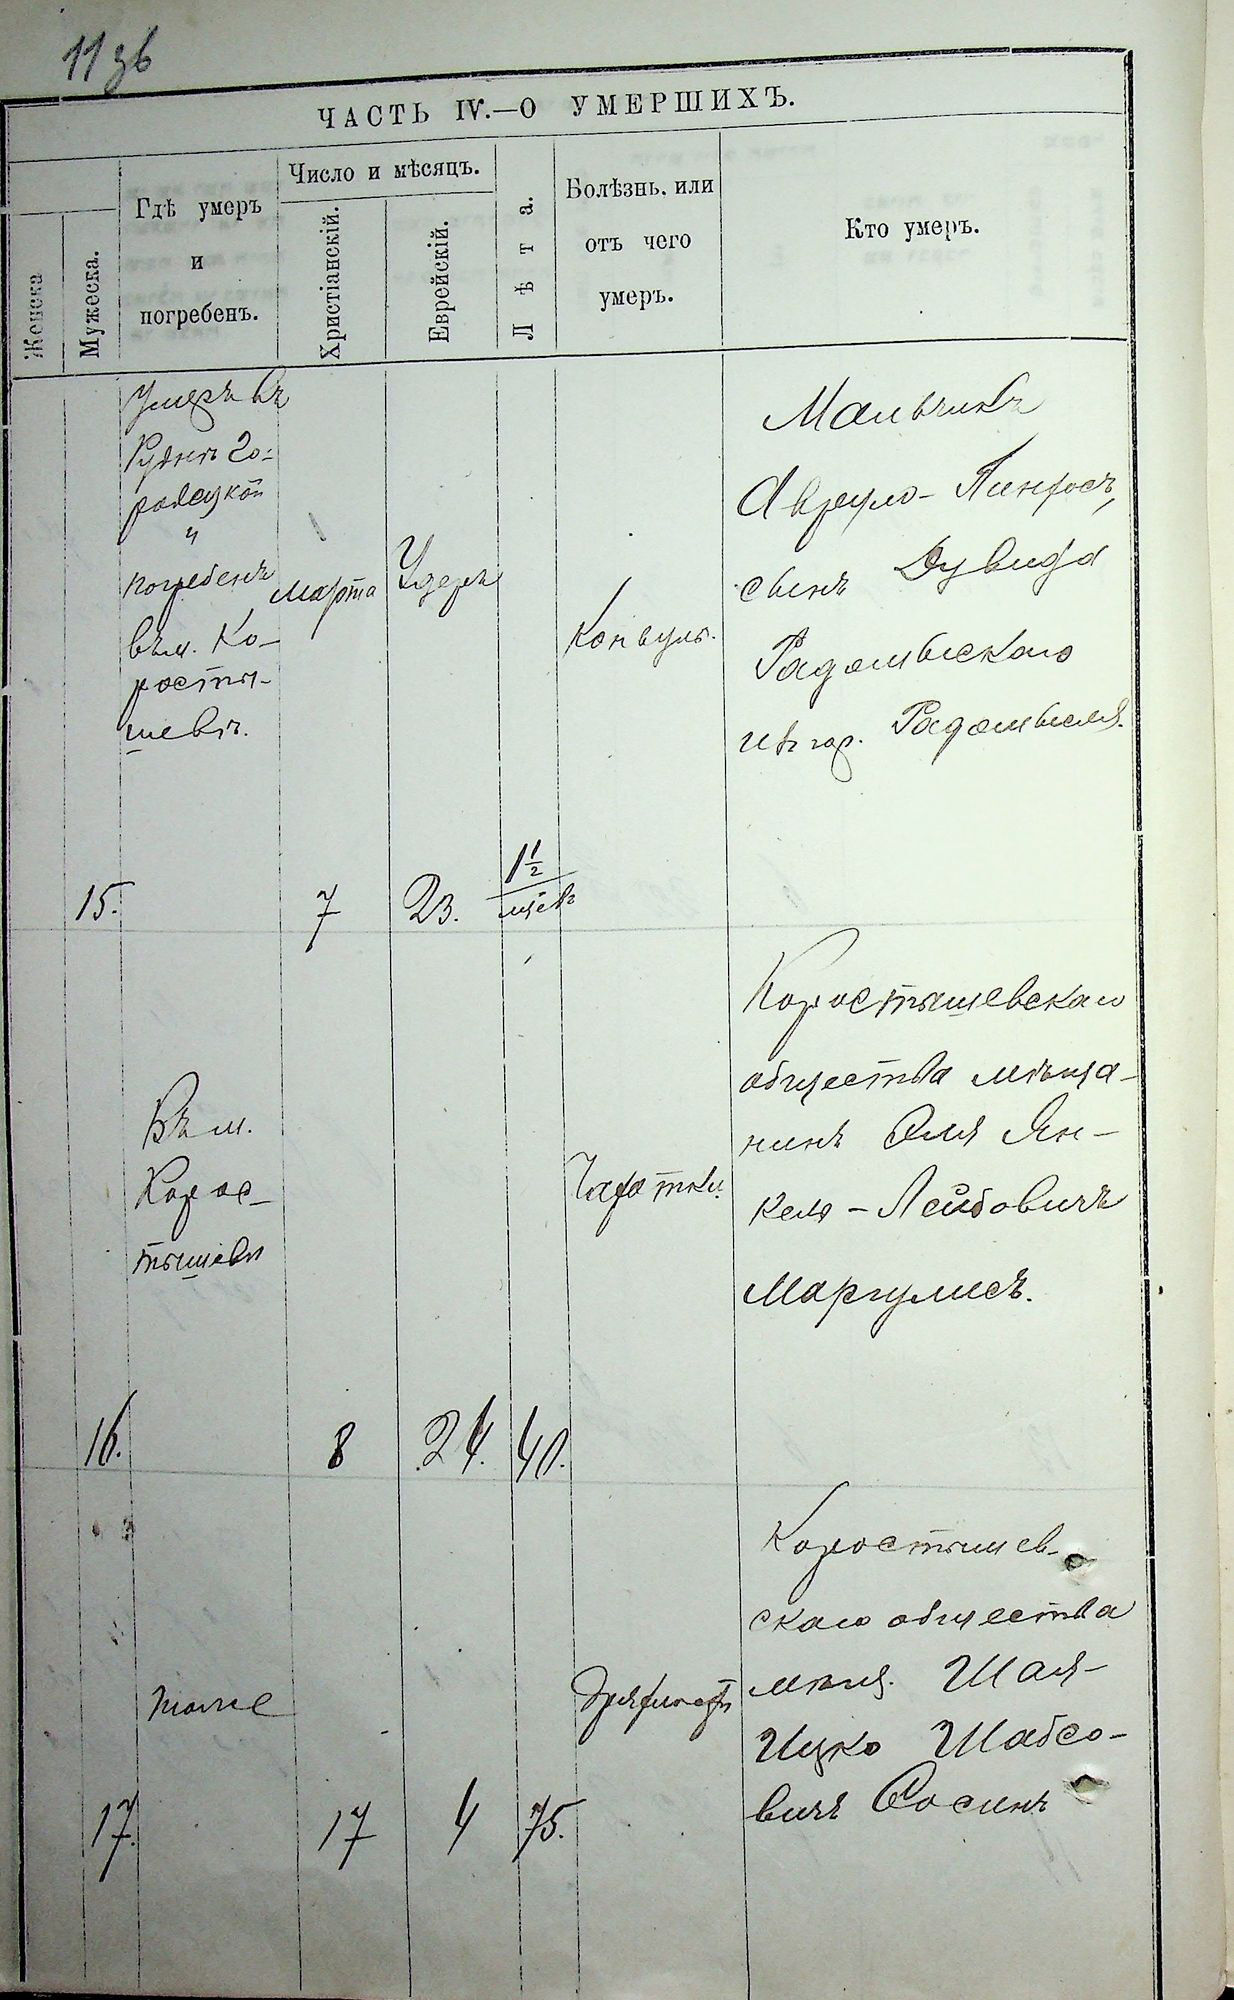 11 зв
ЧАСТЬ IV.—О УМЕРШИХЪ.
Женска
Мужеска.
Гдѣ умеръ
и
погребенъ.
Число и мѣсяцъ.
Христіанскій.
Еврейскій.
Лѣта.
Болѣзнь. или
отъ чего
умеръ.
Кто умеръ.
Умеръ въ
Руднѣ Го-
родецкой
и
погребенъ
въ м. Ко-
росты-
шевѣ.
Марта
Конвульс.
Мальчикъ
Пинхосъ,
сынъ Дувида
Радомысского
из гор. Радомысля.
15.
7
23.
1 1/2
мѣсяц
Въ м.
Корос-
тышевѣ
Чахотки.
Коростышевскаго
общества мѣща-
нинъ Эля Ян-
кель-Лейбовичъ
Маргулисъ.
16.
8
24.
40.
тоже
Дряхлость
Коростышев-
скаго общества
мѣщ. Шая-
Ицко Шабсо-
вичъ Сосинъ
17.
17
4
75.